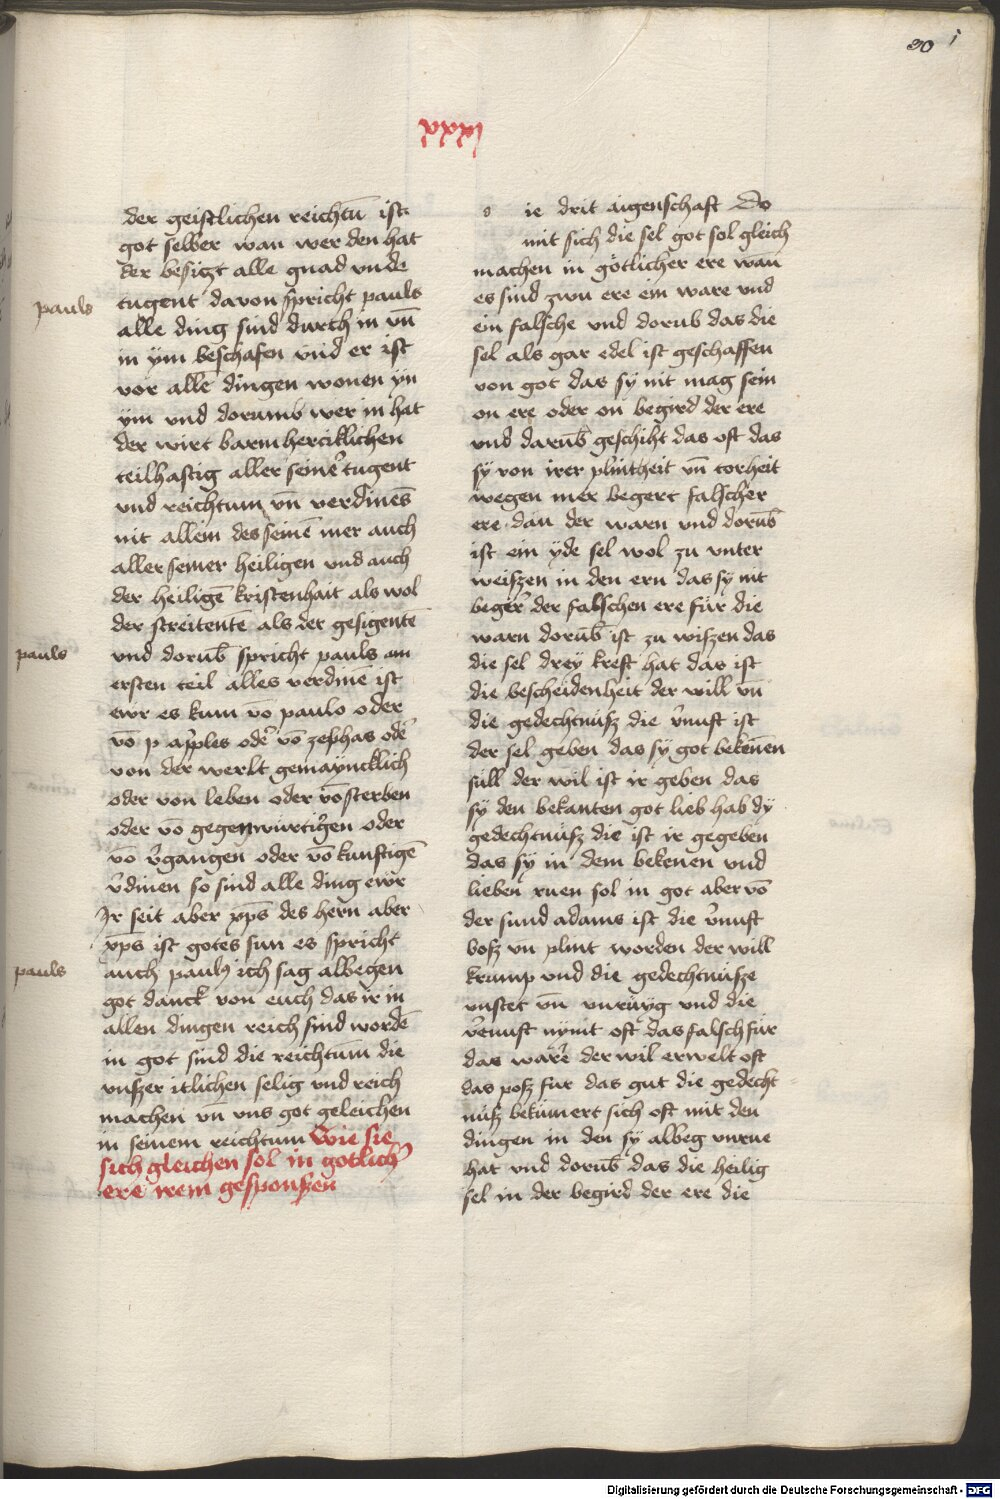 30 i
xxxj
der geistlichen reichtū ist
got selber wan wer den hat
der besiczt alle gnad vnde
tugent davon spricht pauls
pauls
alle ding sind durch in vn̄
in ym beschafen vnd er ist
vor allē dingen wonen yn
ym vnd dorumb wer in hat
der wirt barmhercziklichen
teilhaftig aller seiner tugent
vnd reichtum vn̄ verdinēs
nit allein des seinē mer auch
aller seiner heiligen vnd auch
der heiligē kristenhait als wol
der streitentē als der gesigentē
vnd dorub̄ spricht pauls am
pauls
ersten teil alles verdinē ist
ewr es kum vō paulo oder
vō p apples oder vō zephas oder
von der werlt gemayncklich
oder von leben oder vō sterben
oder vō gegenwurtigen oder
vō vgangen oder vō kunftigē
vdinen so sind alle ding ewr
Ir seit aber xp̄s des hern aber
xp̄s ist gotes sun es spricht
auch pauls ich sag albegen
pauls
got danck von euch das ir in
allen dingen reich sind wordē
in got sind die reichtum die
vnszer itlichen selig vnd reich
machen vn̄ vns got geleichen
in seinem reichtum Wie sie
sich gleichen sol in gotlicher
ere irem gesponszen
d ie drit aigenschaft Do
mit sich die sel got sol gleich
machen in götlicher ere wan
es sind zwu ere ein ware vnd
ein falsche vnd dorub das die
sel als gar edel ist geschaffen
von got das sy nit mag sein
on ere oder on begird der ere
vnd darub̄ geschiht das oft das
sy von irer plintheit vn̄ torheit
wegen mer begert falscher
ere dan der warn vnd dorub̄
ist ein yde sel wol zu vnter
weiszen in den ern das sy nit
beger der falschen ere für die
warn dorub̄ ist zu wiszen das
die sel drey kreft hat das ist
die bescheidenheit der will vn̄
die gedechtnüsz die vnuft ist
der sel geben das sy got bekēnen
süll der wil ist ir geben das
sy den bekanten got lieb hab dy
gedechtnüsz die ist ir gegeben
das sy in dem bekenen vnd
lieben ruen sol in got aber vō
der sund adams ist die vnuft
bosz vn plint worden der will
krump vnd die gedechtnusze
vnstet vn̄ vnrüyg vnd die
vernuft nymt oft das falsch für
das ware der wil erwelt oft
das posz für das gut die gedecht
nüsz beküment sich oft mit den
dingen in den sy albeg vnrue
hat vnd dorub̄ das die heilig
sel in der begird der ere die
Digitalisierung gefördert durch die Deutsche Forschungsgemeinschaft - DFG